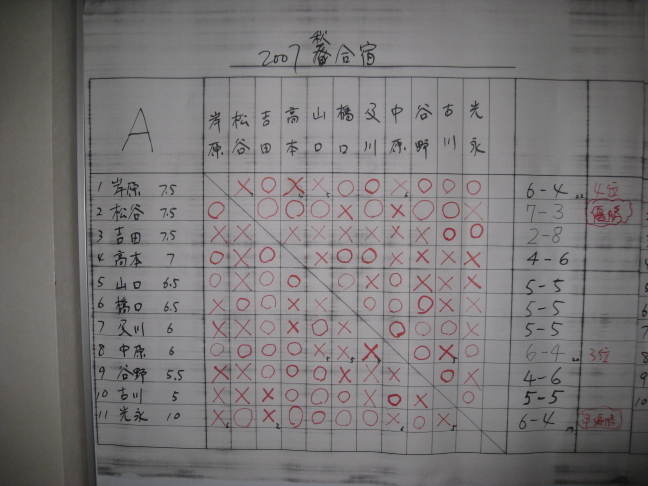 2007 秋合宿
A 岸原 松谷 吉田 高本 山口 橋口 及川 中原 谷野 古川 光永
1 岸原 7.5 × ○ × × ○ ○ × ○ ○ ○ 6-4 4位
2 松谷 7.5 ○ ○ ○ ○ × ○ × ○ ○ × 7-3 優勝
3 吉田 7.5 × × × × × × × × ○ ○ 2-8
4 高本 7 ○ × ○ × ○ ○ × × × × 4-6
5 山口 6.5 ○ × ○ ○ ○ × ○ × × × 5-5
6 橋口 6.5 × ○ ○ × × ○ ○ ○ × × 5-5
7 及川 6 × × ○ × ○ × ○ ○ ○ × 5-5
8 中原 6 ○ ○ ○ ○ × × × ○ × ○ 6-4 3位
9 谷野 5.5 × × ○ ○ ○ × × × ○ × 4-6
10 古川 5 × × × ○ ○ ○ × ○ × ○ 5-5
11 光永 10 × ○ × ○ ○ ○ ○ × ○ × 6-4 準優勝